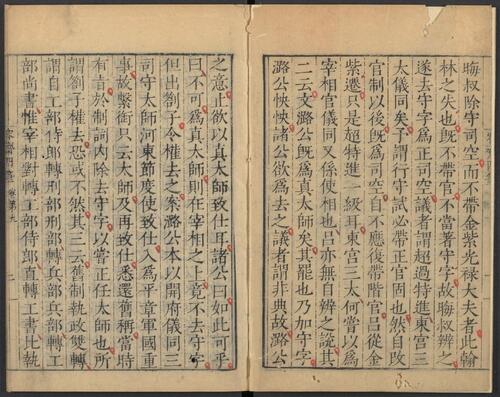 晦叔除守司空而不帶金紫光祿大夫者此翰
林之失也旣不帶官自當著守字故晦叔辨之
遂去守字為正司空議者謂超過特進東宮三
太儀同矣予謂行守試必帶正官固也然自改
官制以後旣為司空自不應復帶階官呂從金
紫遷只是超特進一級耳東宮三太何嘗以為
宰相官儀同又係使相也呂亦無自辨之說其
二云文潞公旣為真太師矣其罷也乃加守字
潞公怏怏諸公欲為去之議者謂非典故潞公
之意止欲以真太師致仕耳諸公曰如此可乎
曰不可為真太師則在宰相之上竟不去守字
但出劄子令權去之案潞公本以開府儀同三
司守太師河東節度使致仕入為平章軍國重
事故繫銜只云太師及再致仕悉還舊稱當時
有旨於制詞內除去守字以嘗正任太師也所
謂劄子權去恐或不然其三云舊制執政雙轉
謂自工部侍郎轉刑部刑部轉兵部兵部轉工
部尚書惟宰相對轉工部侍郎直轉工書比執
卷第九
二